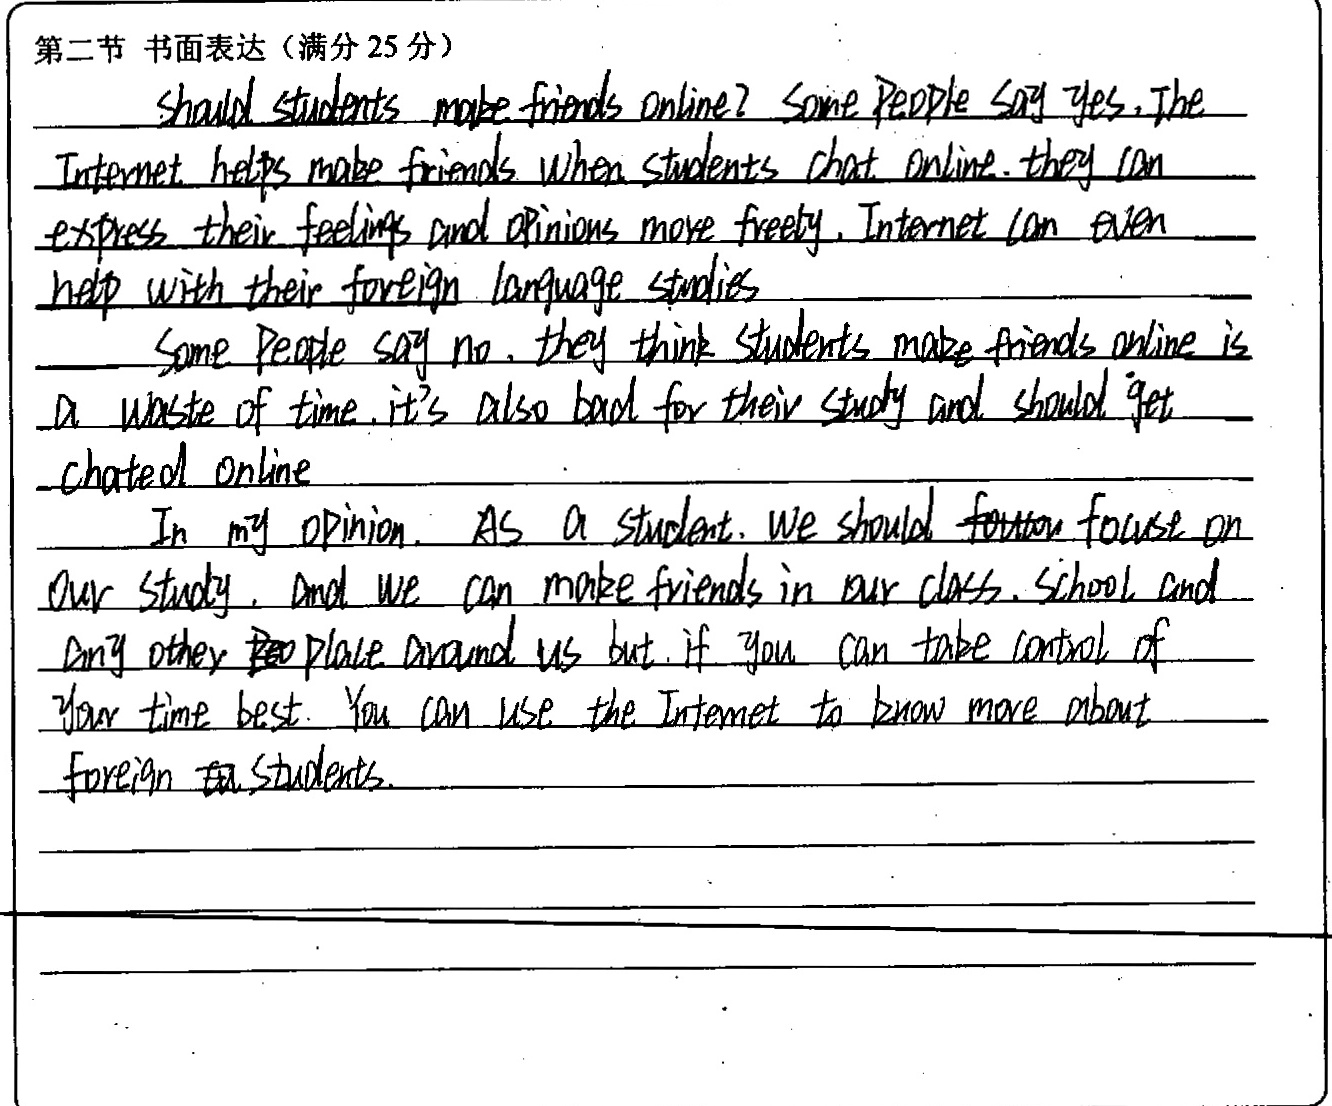 第二节 书面表达（满分 25 分）
should students make friends online? Some People say yes. The
Internet helps make friends when students chat online. they can
express their feelings and opinions more freely. Internet can even
help with their foreign language studies
Some People say no. they think students make friends online is
a waste of time. it's also bad for their study and should get
chated online
In my opinion. As a student. we should focuse on
our study. and we can make friends in our class. school and
any other place around us but. if you can take control of
your time best. You can use the Internet to know more about
foreign students.